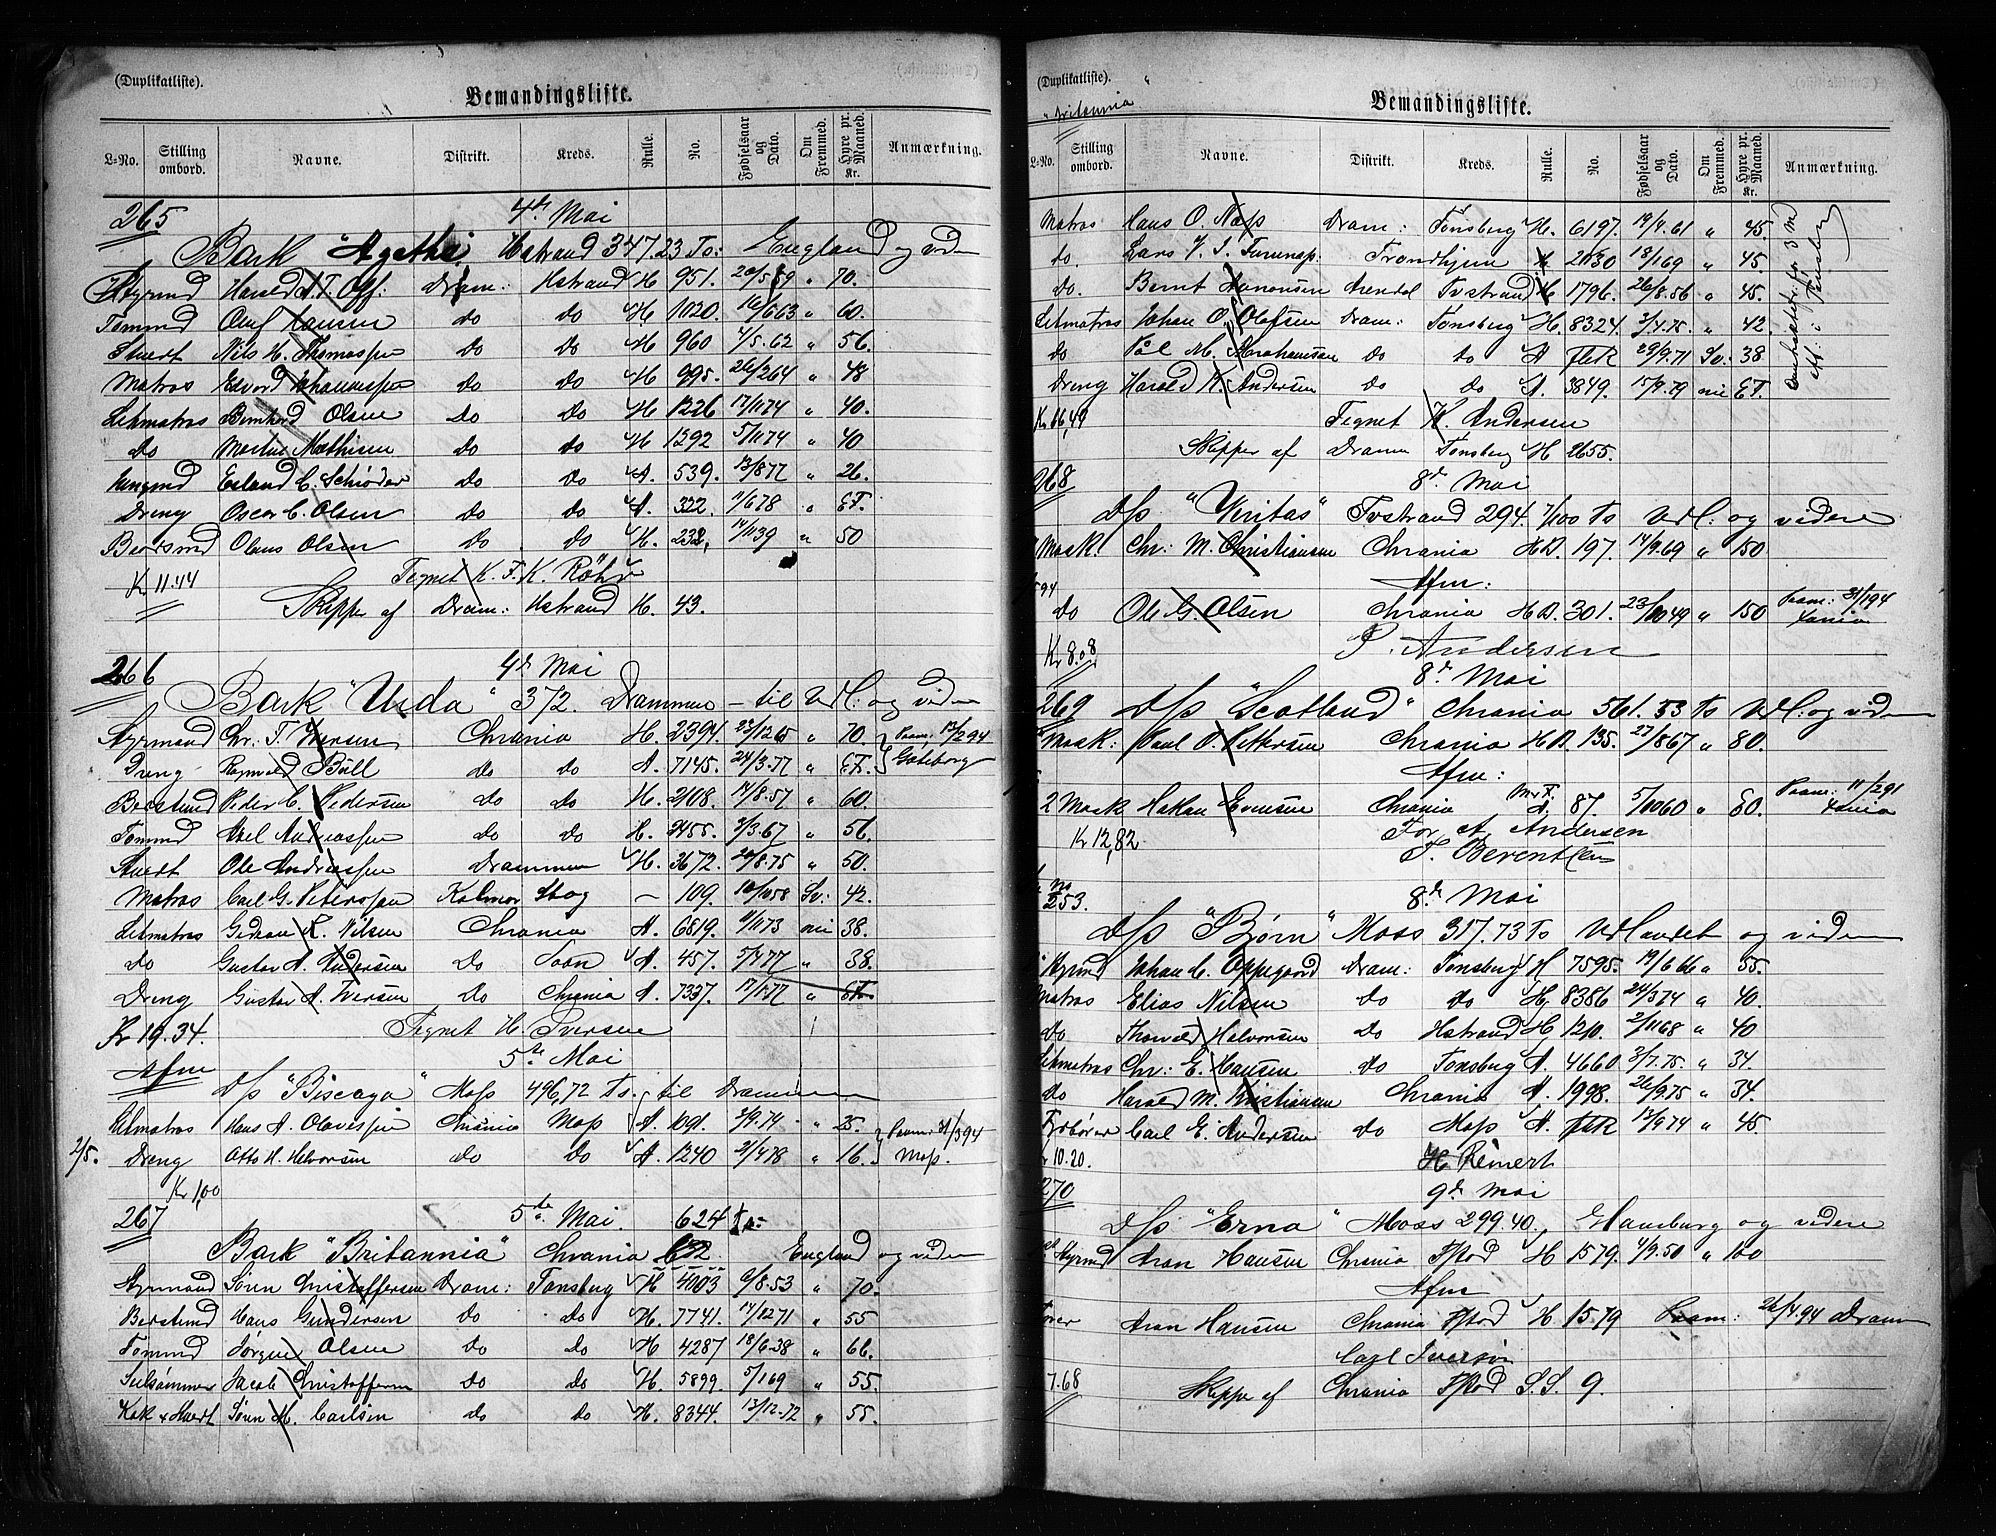 (Duplikatliste).
Bemandingsliste.
L-No. Stilling ombord. Navne. Distrikt. Kreds. Rulle. No. Fødselsaar og Dato. Om Fremmed. Hyre pr. Maaned. Kr. Anmærkning.
265 4de Mai
Bark "Agathe" Hstrand 347.23 To: England og vider
Styrmd Harald A. T. Off. Dram: Hstrand H 951. 20/5 59 " 70.
Tømmd Oluf Hansen do do H 1020. 16/6 63 " 60.
Stuert Nils H. Thomassen do do H 960 4/5.62 " 56.
Matros Edvard Johannessen do do H 995. 26/2 64 " 48
Letmatros Bernhard Olsen do do H 1226 17/11 74 " 40.
do Martin Mathisen do do H 1292 5/11 74 " 40
Jungmd Erland C. Schrøder do do A. 539. 13/8 77 " 26.
Dreng Oscar C. Olsen do do A. 322. 11/6 78 " ET.
Bestmd Olaus Olsen do do H. 232. 14/11 39 " 50
Kr 11.44 Tegnet K. F. K. Röhr
Skipper af Dram: Hstrand H. 43.
266 4de Mai
Bark "Unda" 372. Drammen - til Udl: og vider
Styrmand Chr. F. Iversen Chrania H. 2394 23/12 65 " 70 Paam: 13/2 94
Dreng Ragnvald Bull do do A. 7145. 24/3.77 " ET. Göteborg
Bestmd Peder C. Pedersen do do H. 2108. 14/8.57 " 60.
Tømmd Axel Andreassen do do H. 3455. 3/3.67 " 56.
Stuert Ole Andreassen Drammen H. 3672. 20/8.75 " 50.
Matros Carl G. Peterssen Kalmar Skog - 109. 10/10 58 Sv: 42.
Letmatros Gedion K. Nilsen Chrania A. 6819. 4/11 73 nei 38.
do Gustav A. Andersen do Soon A. 457. 5/4 77 " 38.
Dreng Gustav A. Iversen do Chrania A. 7337. 17/1 77 " ET.
Kr 19.34. Tegnet H. Iversen
Afm 5te Mai
D/s "Biscaya" Moss 496,72 Ts. til Drammen
Letmatros Hans A. Olavesen Chrania Moss A. 1091. 3/9.74 " 25. Paam: 31/3 94
2/5. Dreng Otto H. Halvorsen do do A. 1240 2/4 78 " 16. Moss.
Kr 1,00
267 5te Mai. 624 To
Bark "Britannia" Chrania 672. England og vider
Styrmand Sören Christoffersen Dram: Tønsberg H 4003 9/8.53 " 70.
Bestmd Hans Gundersen do do H. 7741. 14/12 71 " 55
Tømmd Jørgen Olsen do do H 4287 18/6.38 " 66.
Seilsømmer Jacob Christoffersen do do H. 5899. 5/1 69 " 55.
Kok & Stuert Sören M. Carlsen do do H. 8344. 13/12.72 " 55.
(Duplikatliste).
"Britannia
Bemandingsliste.
L-No. Stilling ombord. Navne. Distrikt. Kreds. Rulle. No. Fødselsaar og Dato. Om Fremmed. Hyre pr. Maaned. Kr. Anmærkning.
Matros Hans O. Næss Dram: Tønsberg H. 6197. 19/4.61 " 45.
do Lars J. S. Furunæs. Trondhjem H 2130 18/1 69 " 45.
do. Bernt Aanonsen Arendal Tvstrand H 1796. 26/8.56 " 45.
Letmatros Johan O. Olafsen Dram: Tønsberg H. 8324. 3/4.75. " 42.
do Pål M. Abrahamsen do do A 29/9.71 Sv: 38
Dreng Harald K. Andersen do do A. 3849. 15/9.79 nei ET.
Kr 66,49 Tegnet K. Andersen
Skipper af Dram Tønsberg H 2655.
268 8de Mai
D/s "Veritas" Tvstrand 294. 7/100 Ts Udl: og videre
Mask. Chr: M. Christiansen Chrania H A. 197. 14/9.69 " 150
Afm:
do Ole G. Olsen Chrania H A. 301. 23/10 49 " 150 Paam: 31/1 94 Xania
Kr 8.08 P. Andersen
8de Mai
269 D/s "Scotland" Chrania 561.53 Ts Udl: og vider
Mask: Paul O. Pettersen Chrania H A. 135. 27/8 67 " 80.
Afm:
2 Mask Hakan Evensen Chrania A. 87. 5/10 60 " 80. Paam: 11/2 91 Xania
Kr 12,82. For A. Andersen
T. Berentsen
no 253. 8de Mai
D/s "Bjørn" Moss 317.73 Ts Udlandet og vider
Styrmd Johan C. Oppegaard Dram: Tønsberg H 7595. 19/6 66 " 55.
Matros Elias Nilsen do do H. 8386 24/3 74 " 40.
do Thorvald Halvorsen do Hstrand H. 1210. 2/11 68 " 40
Letmatros Chr: E. Hansen do Tønsberg A. 4660 3/7.75. " 34.
do Harald M. Kristiansen Chrania A. 1998. 26/9.75 " 34.
Fyrbøter Carl E. Andersen do Moss A. 17/9 74 " 45.
Kr 10.20. H Reinert
270 9de Mai
D/s "Erna" Moss 299.40. Hamburg og videre
Styrmd Aron Hansen Chrania Fstad H 1579. 4/9.50 " 100
Afm
Aron Hansen Chrania Fstad H 1579 Paam: 26/4.94 Dram
Carl Iversen
7.68 Skipper af Chrania Fstad S.S. 9.